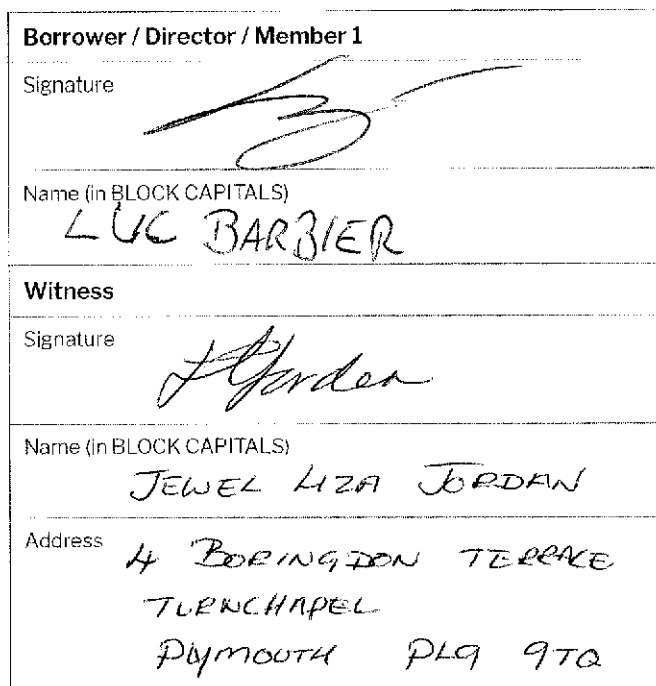 Borrower / Director / Member 1
Signature
Name (in BLOCK CAPITALS)
LUC BARBIER
Witness
Signature
Jordan
Name (in BLOCK CAPITALS)
JEWEL LIZA JORDAN
Address 4 BORINGDON TERRACE
TURNCHAPEL
PLYMOUTH PL9 9TQ